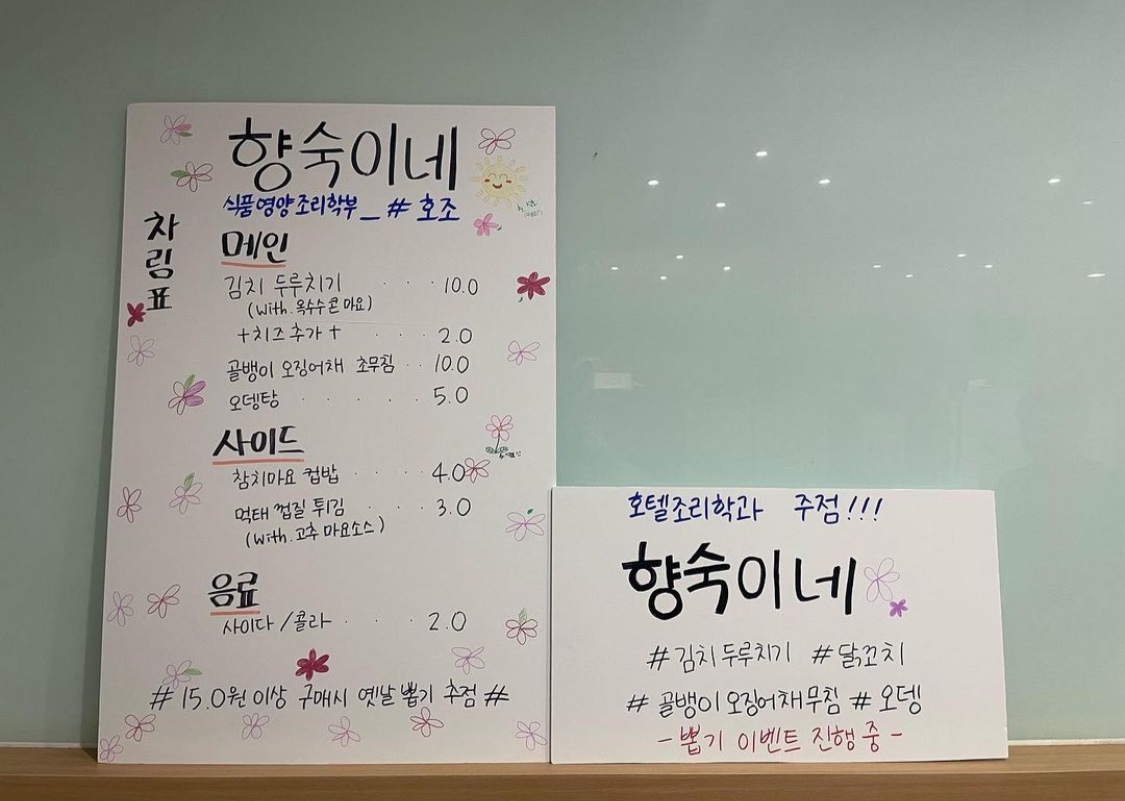 향숙이네
식품영양조리학부_ #호조
차림표
메인
김치 두루치기 · · · 10.0
(with.옥수수콘마요)
+치즈추가+ · · · 2.0
골뱅이 오징어채 초무침 · · 10.0
오뎅탕 · · · · · 5.0
사이드
참치마요 컵밥 · · · 4.0
먹태껍질 튀김 · · · 3.0
(with.고추마요소스)
음료
사이다/콜라 · · · 2.0
# 15.0원 이상 구매시 옛날 뽑기 추점 #
호텔조리학과 주점!!!
향숙이네
#김치두루치기 #닭꼬치
# 골뱅이오징어채무침 # 오뎅
- 뽑기 이벤트 진행 중 -